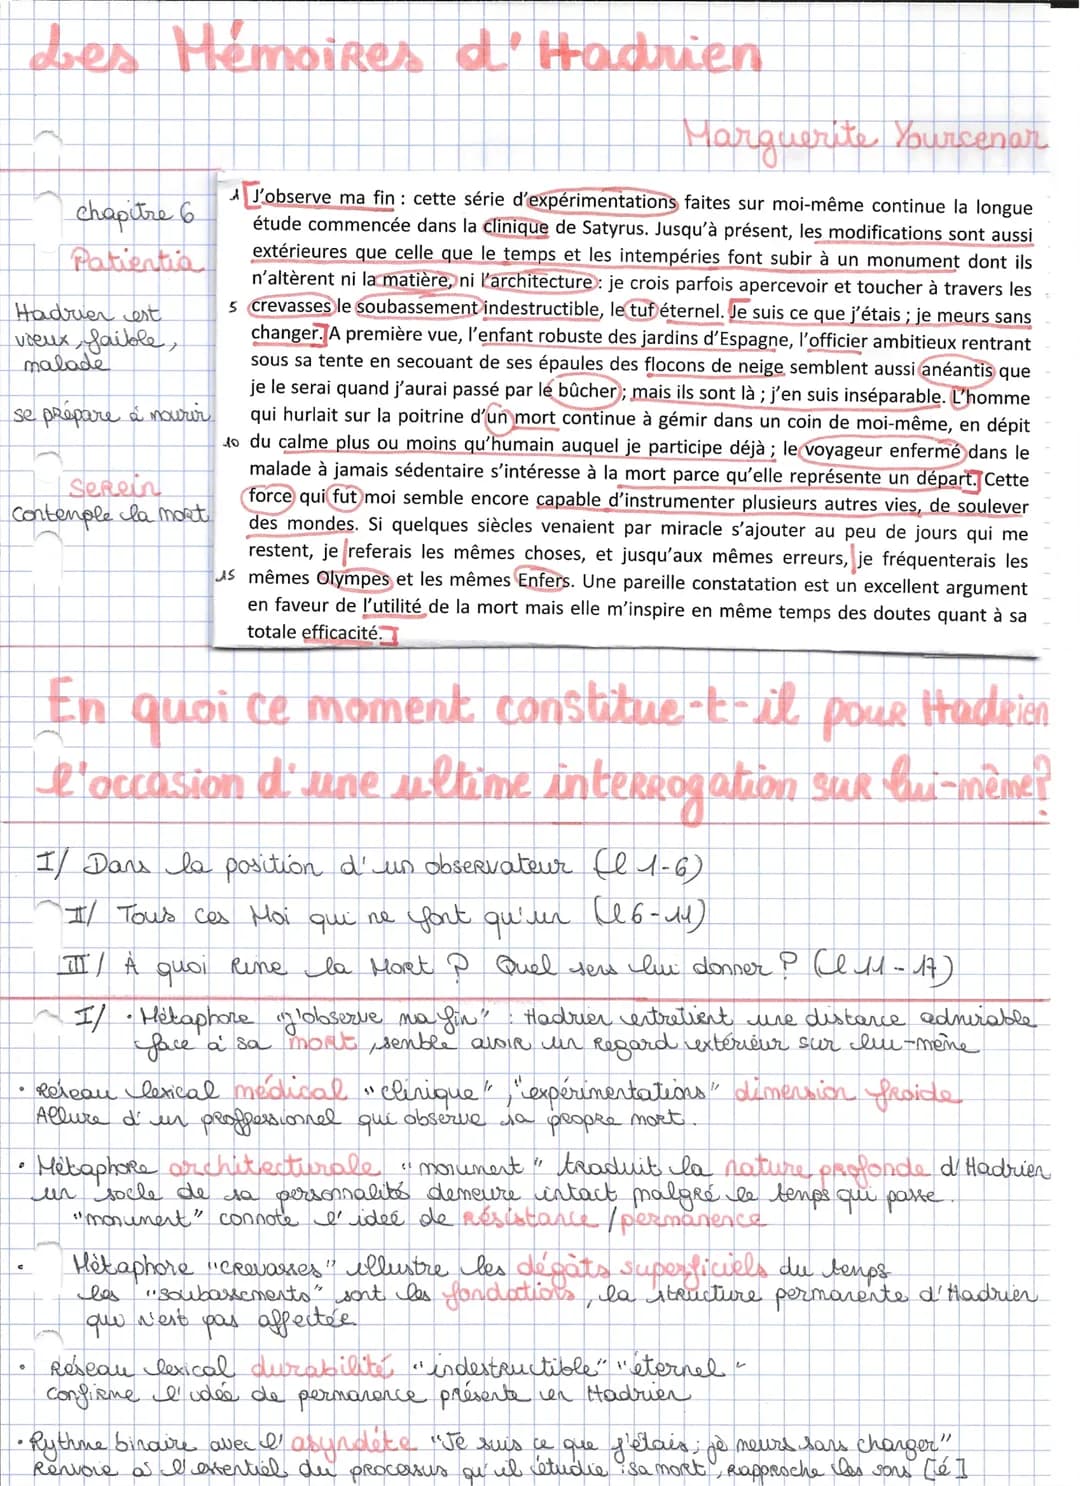 Les Mémoires d'Hadrien
Marguerite Yourcenar
chapitre 6
Patientia
Hadrien est
vieux, faible,
malade
se prépare à mourir
Serein
contemple la mort
1 [J'observe ma fin : cette série d'expérimentations faites sur moi-même continue la longue
étude commencée dans la clinique de Satyrus. Jusqu'à présent, les modifications sont aussi
extérieures que celle que le temps et les intempéries font subir à un monument dont ils
n'altèrent ni la matière, ni l'architecture : je crois parfois apercevoir et toucher à travers les
5 crevasses le soubassement indestructible, le tuf éternel. [Je suis ce que j'étais ; je meurs sans
changer.] A première vue, l'enfant robuste des jardins d'Espagne, l'officier ambitieux rentrant
sous sa tente en secouant de ses épaules des flocons de neige semblent aussi anéantis que
je le serai quand j'aurai passé par le bûcher ; mais ils sont là ; j'en suis inséparable. L'homme
qui hurlait sur la poitrine d'un mort continue à gémir dans un coin de moi-même, en dépit
10 du calme plus ou moins qu'humain auquel je participe déjà ; le voyageur enfermé dans le
malade à jamais sédentaire s'intéresse à la mort parce qu'elle représente un départ.] Cette
force qui fut moi semble encore capable d'instrumenter plusieurs autres vies, de soulever
des mondes. Si quelques siècles venaient par miracle s'ajouter au peu de jours qui me
restent, je referais les mêmes choses, et jusqu'aux mêmes erreurs, je fréquenterais les
15 mêmes Olympes et les mêmes Enfers. Une pareille constatation est un excellent argument
en faveur de l'utilité de la mort mais elle m'inspire en même temps des doutes quant à sa
totale efficacité.]
En quoi ce moment constitue-t-il pour Hadrien
l'occasion d'une ultime interrogation sur lui-même?
I/ Dans la position d'un observateur (l 1-6)
II/ Tous ces Moi qui ne font qu'un (l 6-11)
III/ À quoi rime la Mort ? Quel sens lui donner ? (l 11-17)
I/ • Métaphore "j'observe ma fin" : Hadrien entretient une distance admirable
face à sa mort, semble avoir un regard extérieur sur lui-même
• Réseau lexical médical "clinique", "expérimentations" dimension froide
Allure d'un proffessionnel qui observe sa propre mort.
• Métaphore architecturale "monument" traduit la nature profonde d'Hadrien
un socle de sa personnalité demeure intact malgré le temps qui passe.
"monument" connote l'idée de résistance / permanence
• Métaphore "crevasses" illustre les dégâts superficiels du temps
les "soubassements" sont les fondations, la structure permanente d'Hadrien
qui n'est pas affectée
• Réseau lexical durabilité "indestructible" "éternel"
confirme l'idée de permanence présente en Hadrien
• Rythme binaire avec l'asyndète "Je suis ce que j'étais; je meurs sans changer"
Renvoie à l'essentiel du processus qu'il étudie : sa mort, rapproche les sons [é]